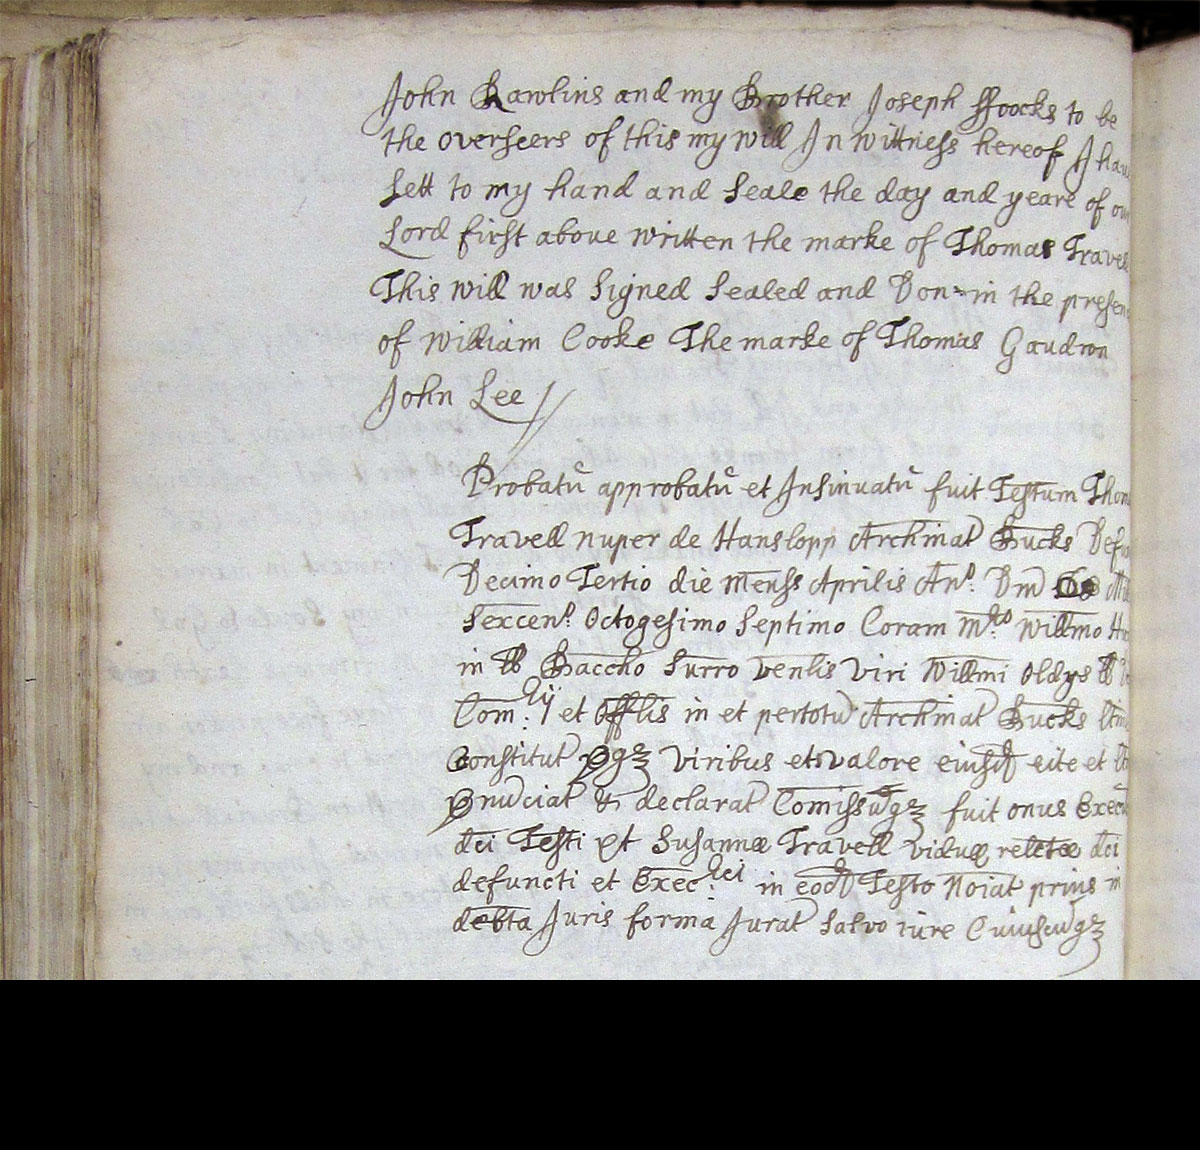 John Rawlins and my Brother Joseph ffoocks to be
the overseers of this my will In wittness hereof I hav
sett to my hand and seale the day and yeare of ou
Lord first above written the marke of Thomas Travel
This will was signed sealed and Don in the presen
of William Cooke The marke of Thomas Gaudron
John Lee
Probatū approbatū et Insinuatū fuit Testum Thom
Travell nuper de Hanslopp Archinat Bucks Defu
Decimo Tertio die menss Aprilis Ano. Dm
Sexceno. Octogesimo Septimo Coram mro willmo
in Baccho Surro venlis viri Willmi Oldys
Com.rij et Offlis in et pertotū Archinat Bucks
Constitut viribus et valore eiusd eite et
declarat Comiss fuit onus Exec
dci Testi et Susannæ Travell viduæ relctæ dci
defuncti et Exec.rici in eod Testo Noiat prius in
debta Juris forma Jurat salvo iure Cuiuscuqz